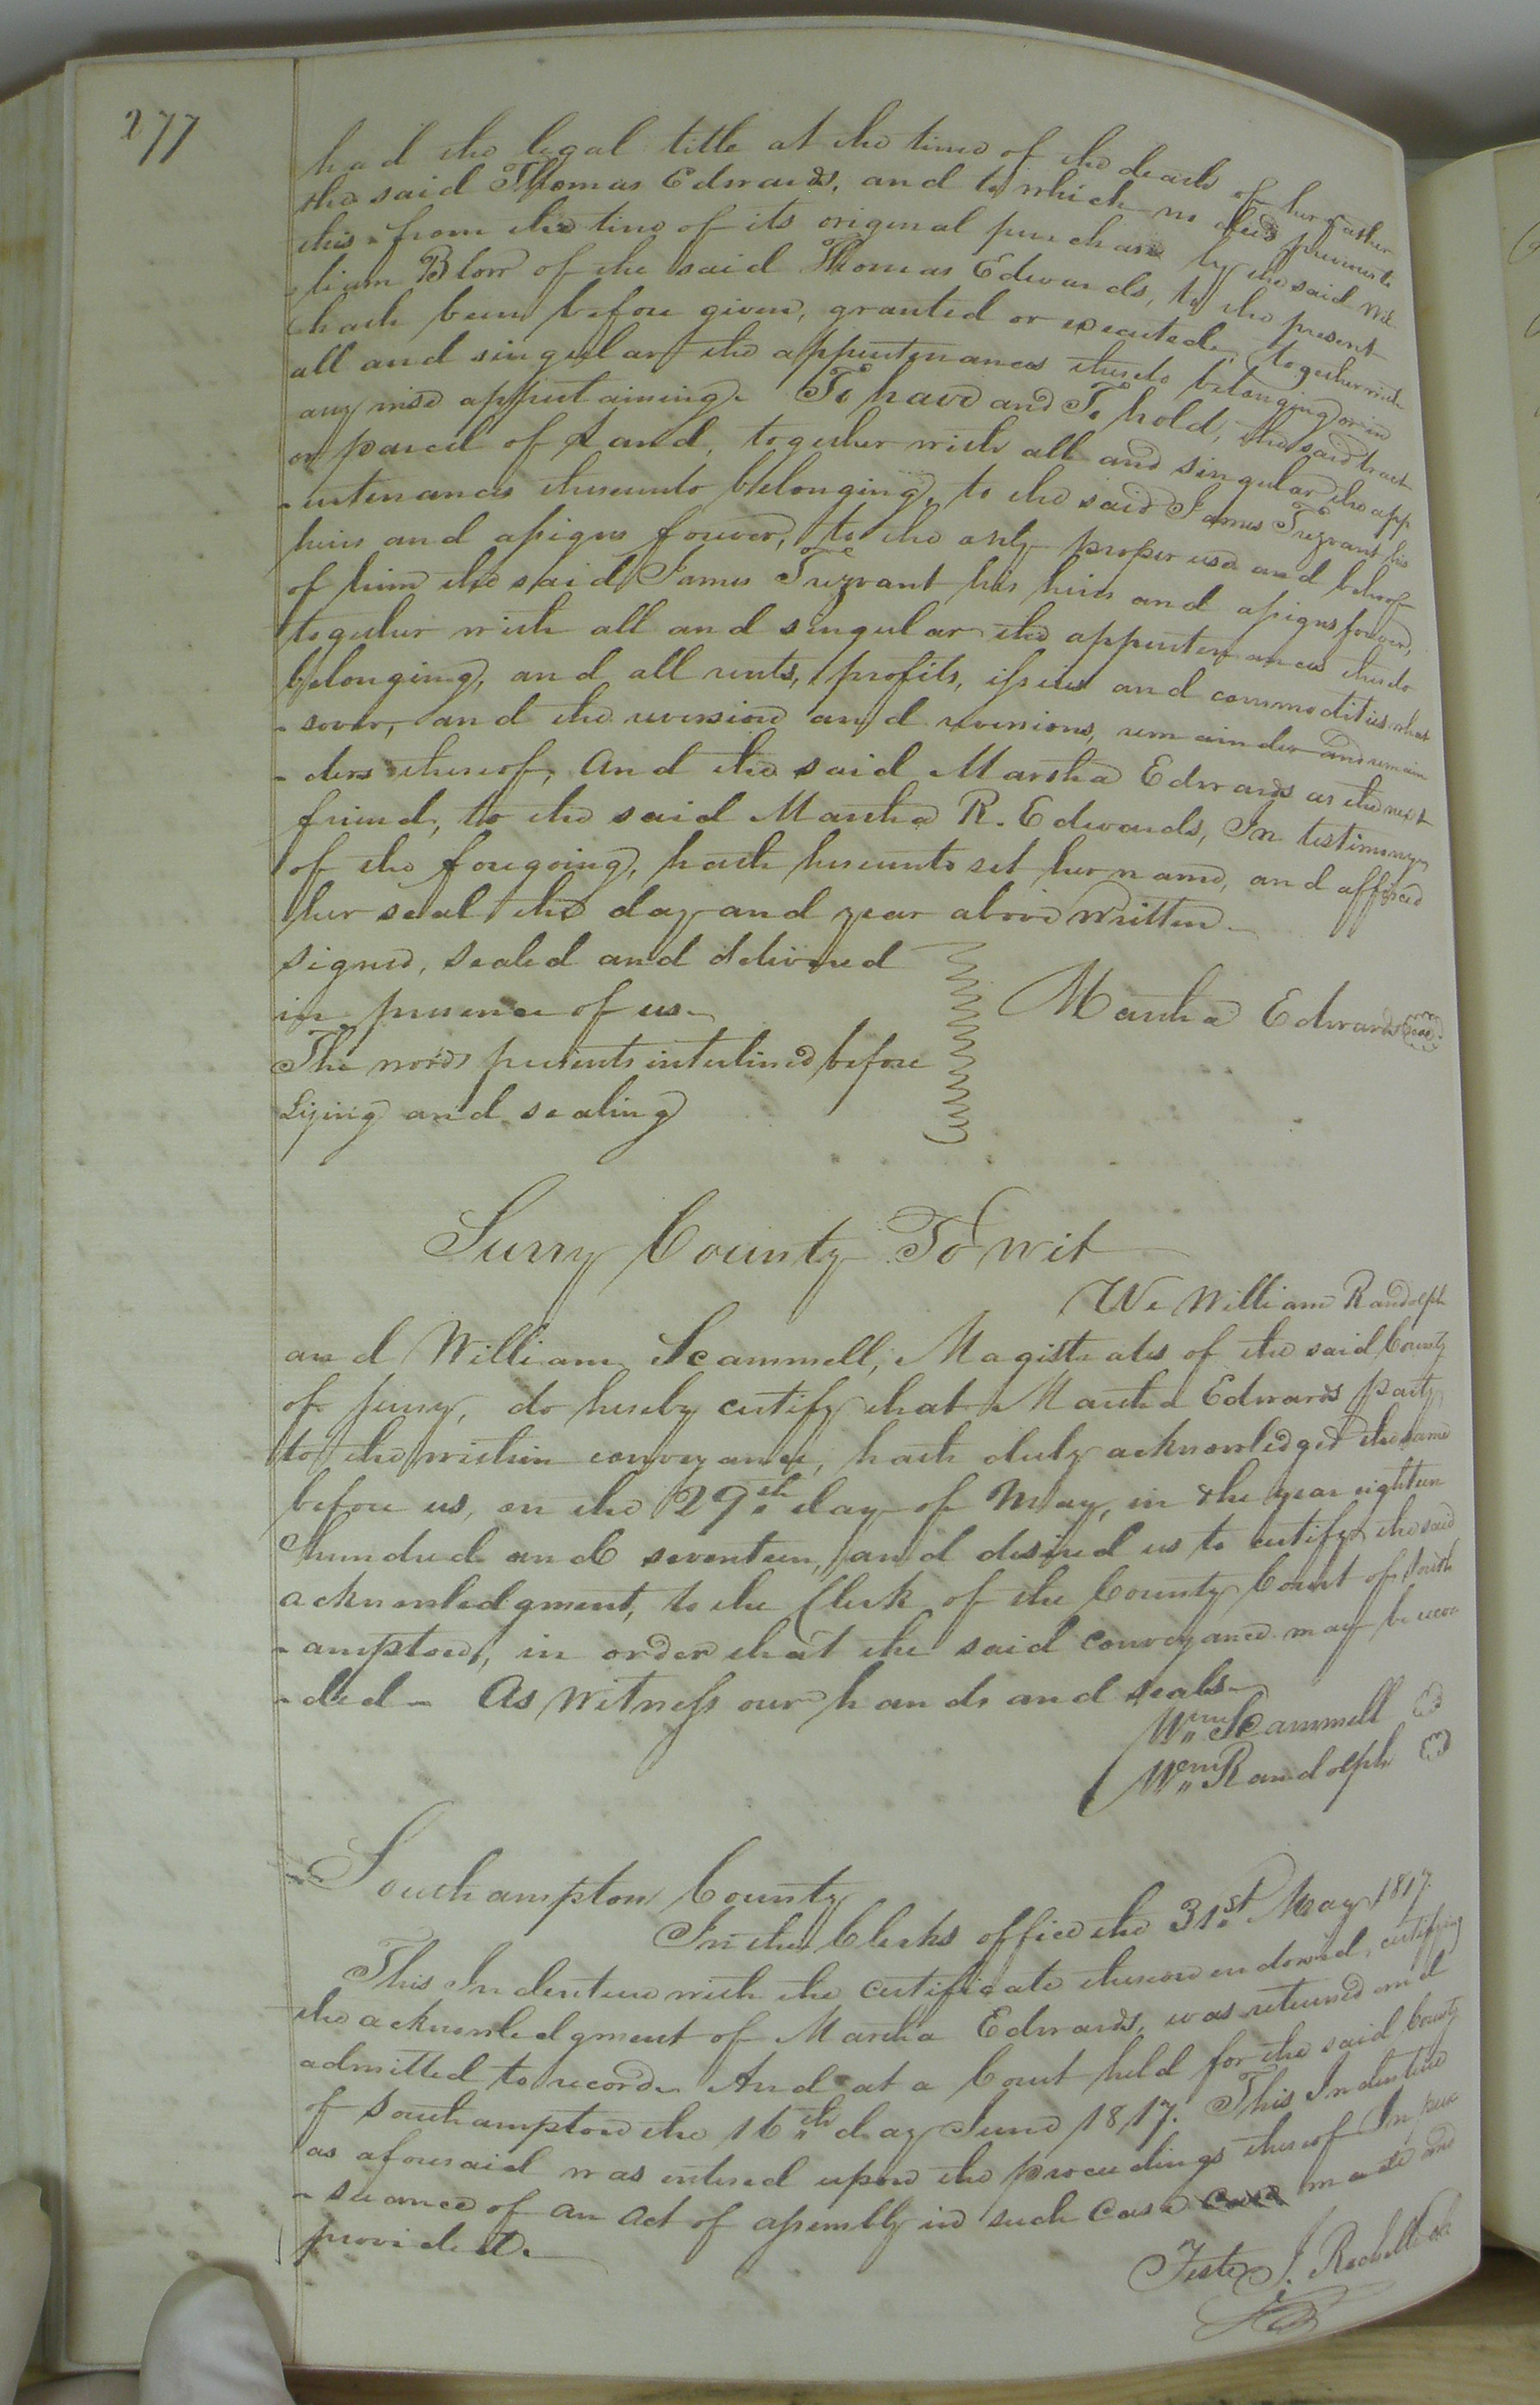 277
had the legal title at the time of the death of her father
the said Thomas Edwards, and to which no deed previous to
this from the time of its original purchase by the said Wil
-liam Blow of the said Thomas Edwards, to the present
hath been before given, granted or executed, together with
all and singular the appurtenances thereto belonging or in
any wise appertaining. To have and To hold, the said tract
or parcel of Land, together with all and singular the app
-urtenances thereunto belonging, to the said James Trezvant his
heirs and assigns forever, to the only proper use and behoof
of him the said James Trezvant his heirs and assigns forever,
together with all and singular the appurtenances thereto
belonging, and all rents, profits, issues and commodities what
-soever, and the reversion and reversions, remainder and remain
-ders thereof, And the said Martha Edwards as the next
friend, to the said Martha R. Edwards, In testimony
of the foregoing, hath hereunto set her name, and affixed
her seal the day and year above Written
signed, sealed and delivered
in presence of us
Martha Edwards seal
The words presents interlined before
Signing and sealing
Surry County To wit
We William Randolph
and William Scammell, Magistrates of the said County
of surry, do hereby certify that Martha Edwards party
to the within conveyance, hath duly acknowledged the same
before us, on the 29th day of May, in the year eighteen
hundred and seventeen, and desired us to certify the said
acknowledgment, to the Clerk of the County Court of South
-ampton, in order that the said conveyance may be recor
-ded - As Witness our hands and seals
Wm Scammell
Wm Randolph
Southampton County
In the Clerks office the 31st May 1817.
This Indenture with the certificate thereon endorsed, certifying
the acknowledgment of Martha Edwards, was returned and
admitted to record. And at a Court held for the said County
of Southampton the 16th day June 1817. This Indenture
as aforesaid was entered upon the proceedings thereof In pur
-suance of an Act of assembly in such case case made and
provided.
Teste J. Rochelle